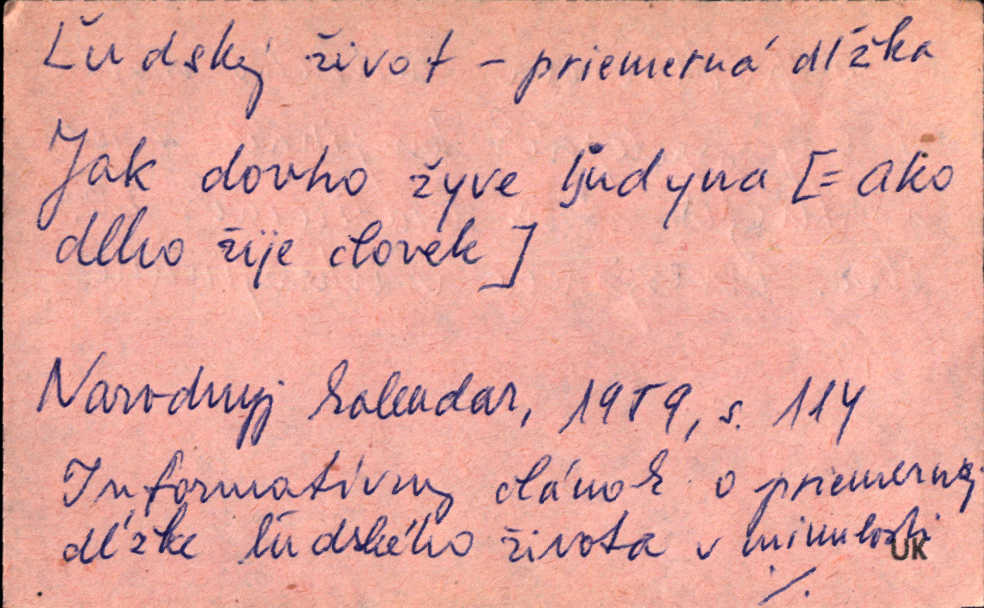 Ľudský život – priemerná dĺžka
Jak dovho žyve ljudyna [= ako
dlho žije človek]
Narodnyj kalendar, 1959, s. 114
Informatívny článok o priemernej
dĺžke ľudského života v minulosti
UK
./.